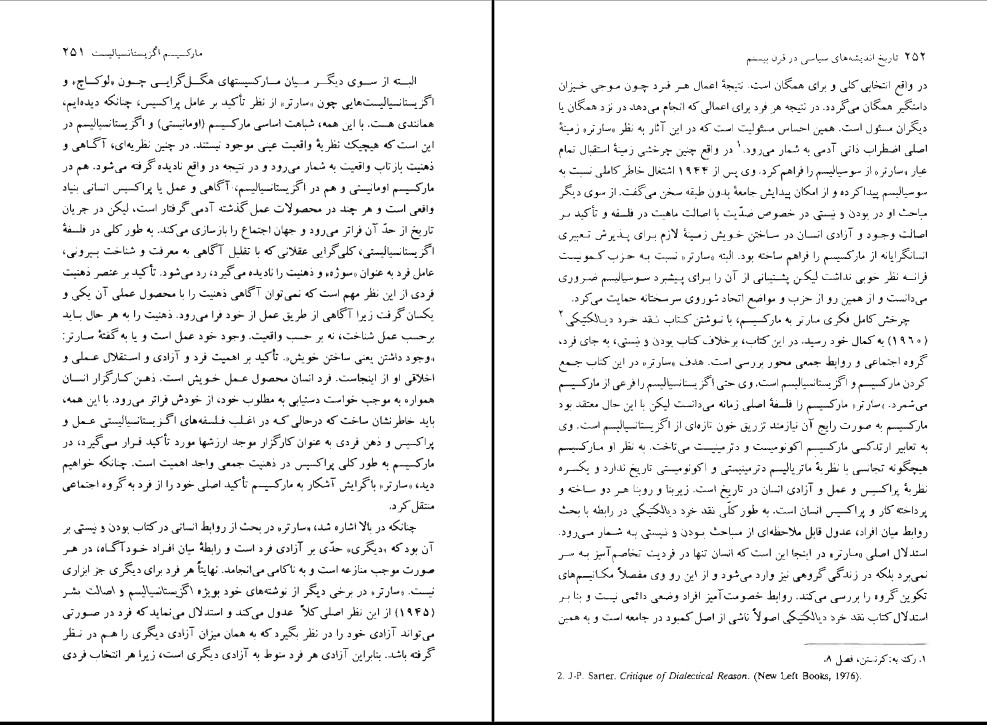 مارکسیسم اگزیستانسیالیست ۲۵۱
البته از سوی دیگر میان مارکسیستهای هگل‌گرایی چون «لوکاچ» و
اگزیستانسیالیست‌هایی چون «سارتر» از نظر تأکید بر عامل پراکسیس، چنانکه دیده‌ایم،
همانندی هست. با این همه، شباهت اساسی مارکسیسم (اومانیستی) و اگزیستانسیالیسم در
این است که هیچیک نظریهٔ واقعیت عینی موجود نیستند. در چنین نظریه‌ای، آگاهی و
ذهنیت بازتاب واقعیت به شمار می‌رود و در نتیجه در واقع نادیده گرفته می‌شود. هم در
مارکسیسم اومانیستی و هم در اگزیستانسیالیسم، آگاهی و عمل یا پراکسیس انسانی بنیاد
واقعی است و هر چند در محصولات عمل گذشته آدمی گرفتار است، لیکن در جریان
تاریخ از حدّ آن فراتر می‌رود و جهان اجتماع را بازسازی می‌کند. به طور کلی در فلسفهٔ
اگزیستانسیالیستی، کلی‌گرایی عقلانی که با تقلیل آگاهی به معرفت و شناخت بیرونی،
عامل فرد به عنوان «سوژه» و ذهنیت را نادیده می‌گیرد، رد می‌شود. تأکید بر عنصر ذهنیت
فردی از این نظر مهم است که نمی‌توان آگاهی ذهنیت را با محصول عملی آن یکی و
یکسان گرفت زیرا آگاهی از طریق عمل از خود فرا می‌رود. ذهنیت را به هر حال باید
برحسب عمل شناخت، نه بر حسب واقعیت. وجود خود عمل است و یا به گفتهٔ سارتر:
«وجود داشتن یعنی ساختن خویش». تأکید بر اهمیت فرد و آزادی و استقلال عملی و
اخلاقی او از اینجاست. فرد انسان محصول عمل خویش است. ذهن کارگزار انسان
همواره به موجب خواست دستیابی به مطلوب خود، از خودش فراتر می‌رود. با این همه،
باید خاطرنشان ساخت که درحالی که در اغلب فلسفه‌های اگزیستانسیالیستی عمل و
پراکسیس و ذهن فردی به عنوان کارگزار موجد ارزشها مورد تأکید قرار می‌گیرد، در
مارکسیسم به طور کلی پراکسیس در ذهنیت جمعی واحد اهمیت است. چنانکه خواهیم
دید، «سارتر» با گرایش آشکار به مارکسیسم تأکید اصلی خود را از فرد به گروه اجتماعی
منتقل کرد.
چنانکه در بالا اشاره شد، «سارتر» در بحث از روابط انسانی در کتاب بودن و نیستی بر
آن بود که «دیگری» حدّی بر آزادی فرد است و رابطهٔ میان افراد خودآگاه، در هر
صورت موجب منازعه است و به ناکامی می‌انجامد. نهایتاً هر فرد برای دیگری جز ابزاری
نیست. «سارتر» در برخی دیگر از نوشته‌های خود بویژه اگزیستانسیالیسم و اصالت بشر
(۱۹۴۵) از این نظر اصلی کلاً عدول می‌کند و استدلال می‌نماید که فرد در صورتی
می‌تواند آزادی خود را در نظر بگیرد که به همان میزان آزادی دیگری را هم در نظر
گرفته باشد. بنابراین آزادی هر فرد منوط به آزادی دیگری است، زیرا هر انتخاب فردی
۲۵۲ تاریخ اندیشه‌های سیاسی در قرن بیستم
در واقع انتخابی کلی و برای همگان است. نتیجهٔ اعمال هر فرد چون موجی خیزان
دامنگیر همگان می‌گردد. در نتیجه هر فرد برای اعمالی که انجام می‌دهد در نزد همگان یا
دیگران مسئول است. همین احساس مسئولیت است که در این آثار به نظر «سارتر» زمینهٔ
اصلی اضطراب ذاتی آدمی به شمار می‌رود.۱ در واقع چنین چرخشی زمینهٔ استقبال تمام
عیار «سارتر» از سوسیالیسم را فراهم کرد. وی پس از ۱۹۴۴ اشتغال خاطر کاملی نسبت به
سوسیالیسم پیدا کرده و از امکان پیدایش جامعهٔ بدون طبقه سخن می‌گفت. از سوی دیگر
مباحث او در بودن و نیستی در خصوص ضدّیت با اصالت ماهیت در فلسفه و تأکید بر
اصالت وجود و آزادی انسان در ساختن خویش زمینهٔ لازم برای پذیرش تعبیری
انسانگرایانه از مارکسیسم را فراهم ساخته بود. البته «سارتر» نسبت به حزب کمونیست
فرانسه نظر خوبی نداشت لیکن پشتیبانی از آن را برای پیشبرد سوسیالیسم ضروری
می‌دانست و از همین رو از حزب و مواضع اتحاد شوروی سرسختانه حمایت می‌کرد.
چرخش کامل فکری سارتر به مارکسیسم، با نوشتن کتاب نقد خرد دیالکتیکی۲
(۱۹۶۰) به کمال خود رسید. در این کتاب، برخلاف کتاب بودن و نیستی، به جای فرد،
گروه اجتماعی و روابط جمعی محور بررسی است. هدف «سارتر» در این کتاب جمع
کردن مارکسیسم و اگزیستانسیالیسم است. وی حتی اگزیستانسیالیسم را فرعی از مارکسیسم
می‌شمرد. «سارتر» مارکسیسم را فلسفهٔ اصلی زمانه می‌دانست لیکن با این حال معتقد بود
مارکسیسم به صورت رایج آن نیازمند تزریق خون تازه‌ای از اگزیستانسیالیسم است. وی
به تعابیر ارتدکسی مارکسیسم اکونومیست و دترمینیست می‌تاخت. به نظر او مارکسیسم
هیچگونه تجانسی با نظریهٔ ماتریالیسم دترمینیستی و اکونومیستی تاریخ ندارد و یکسره
نظریهٔ پراکسیس و عمل و آزادی انسان در تاریخ است. زیربنا و روبنا هر دو ساخته و
پرداخته کار و پراکسیس انسان است. به طور کلّی نقد خرد دیالکتیکی در رابطه با بحث
روابط میان افراد، عدول قابل ملاحظه‌ای از مباحث بودن و نیستی به شمار می‌رود.
استدلال اصلی «سارتر» در اینجا این است که انسان تنها در فردیت تخاصم‌آمیز به سر
نمی‌برد بلکه در زندگی گروهی نیز وارد می‌شود و از این رو وی مفصلاً مکانیسم‌های
تکوین گروه را بررسی می‌کند. روابط خصومت‌آمیز افراد وضعی دائمی نیست و بنا بر
استدلال کتاب نقد خرد دیالکتیکی اصولاً ناشی از اصل کمبود در جامعه است و به همین
۱. رک به: کرنستن، فصل ۸.
2. J-P. Sarter. Critique of Dialectical Reason. (New Left Books, 1976).